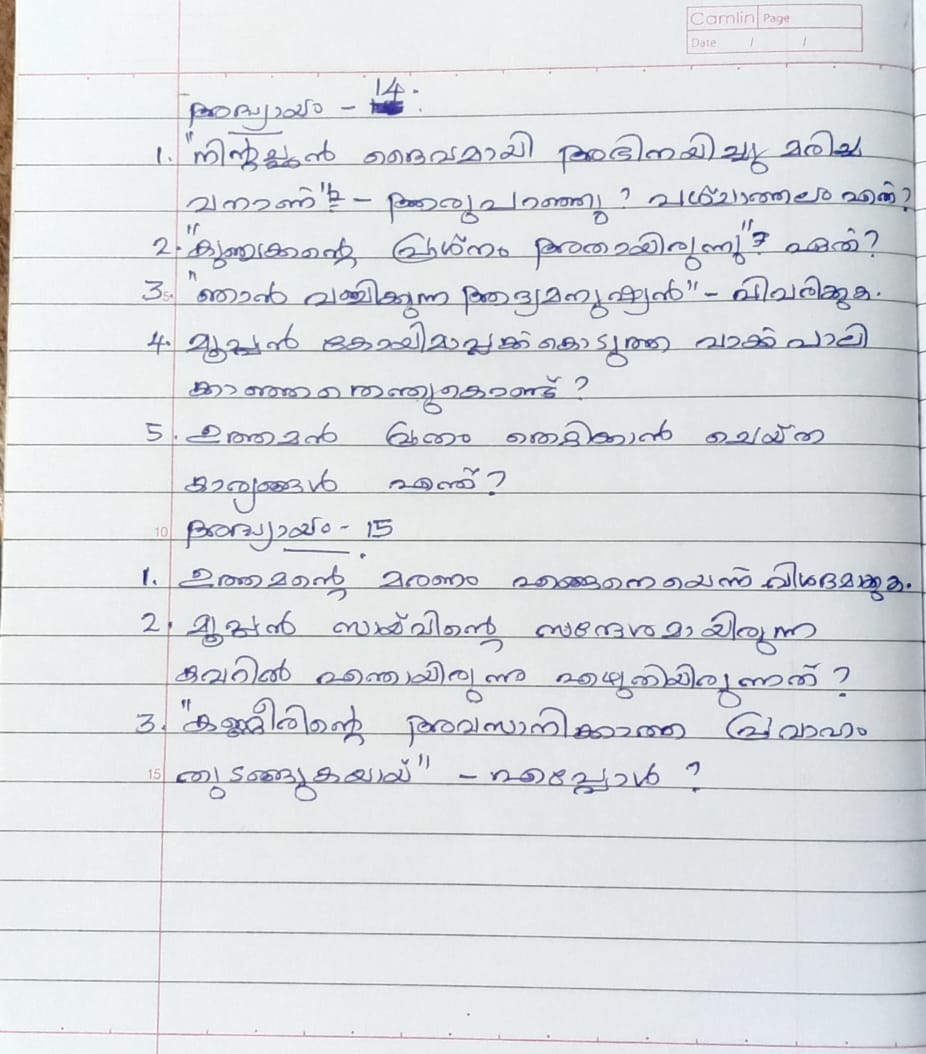 Camlin Page
Date / /
അദ്ധ്യായം - 14.
1. "നിന്റച്ഛൻ ദൈവമായി അഭിനയിച്ചു മരിച്ച
വനാണ്" - ആരു പറഞ്ഞു? പശ്ചാത്തലം ഏത്?
2. "കുഞ്ഞക്കന്റെ പ്രശ്നം അതായിരുന്നു"? ഏത്?
3. "ഞാൻ വഞ്ചിക്കുന്ന ആദ്യമനുഷ്യൻ" - വിവരിക്കുക.
4. മൂപ്പൻ കോയിമാപ്പക്ക് കൊടുത്ത വാക്ക് പാലി
ക്കാഞ്ഞതെന്തുകൊണ്ട്?
5. ഉത്തമൻ വ്രതം തെളിക്കാൻ ചെയ്ത
കാര്യങ്ങൾ എന്ത്?
10 അദ്ധ്യായം - 15
1. ഉത്തമന്റെ മരണം എങ്ങനെയെന്ന് വിശദമാക്കുക.
2. മൂപ്പൻ സായ്‌വിന്റെ സന്ദേശമായിരുന്ന
കവറിൽ എന്തായിരുന്നു എഴുതിയിരുന്നത്?
3. "കണ്ണീരിന്റെ അവസാനിക്കാത്ത പ്രവാഹം
15 തുടങ്ങുകയായ്" - എപ്പോൾ?